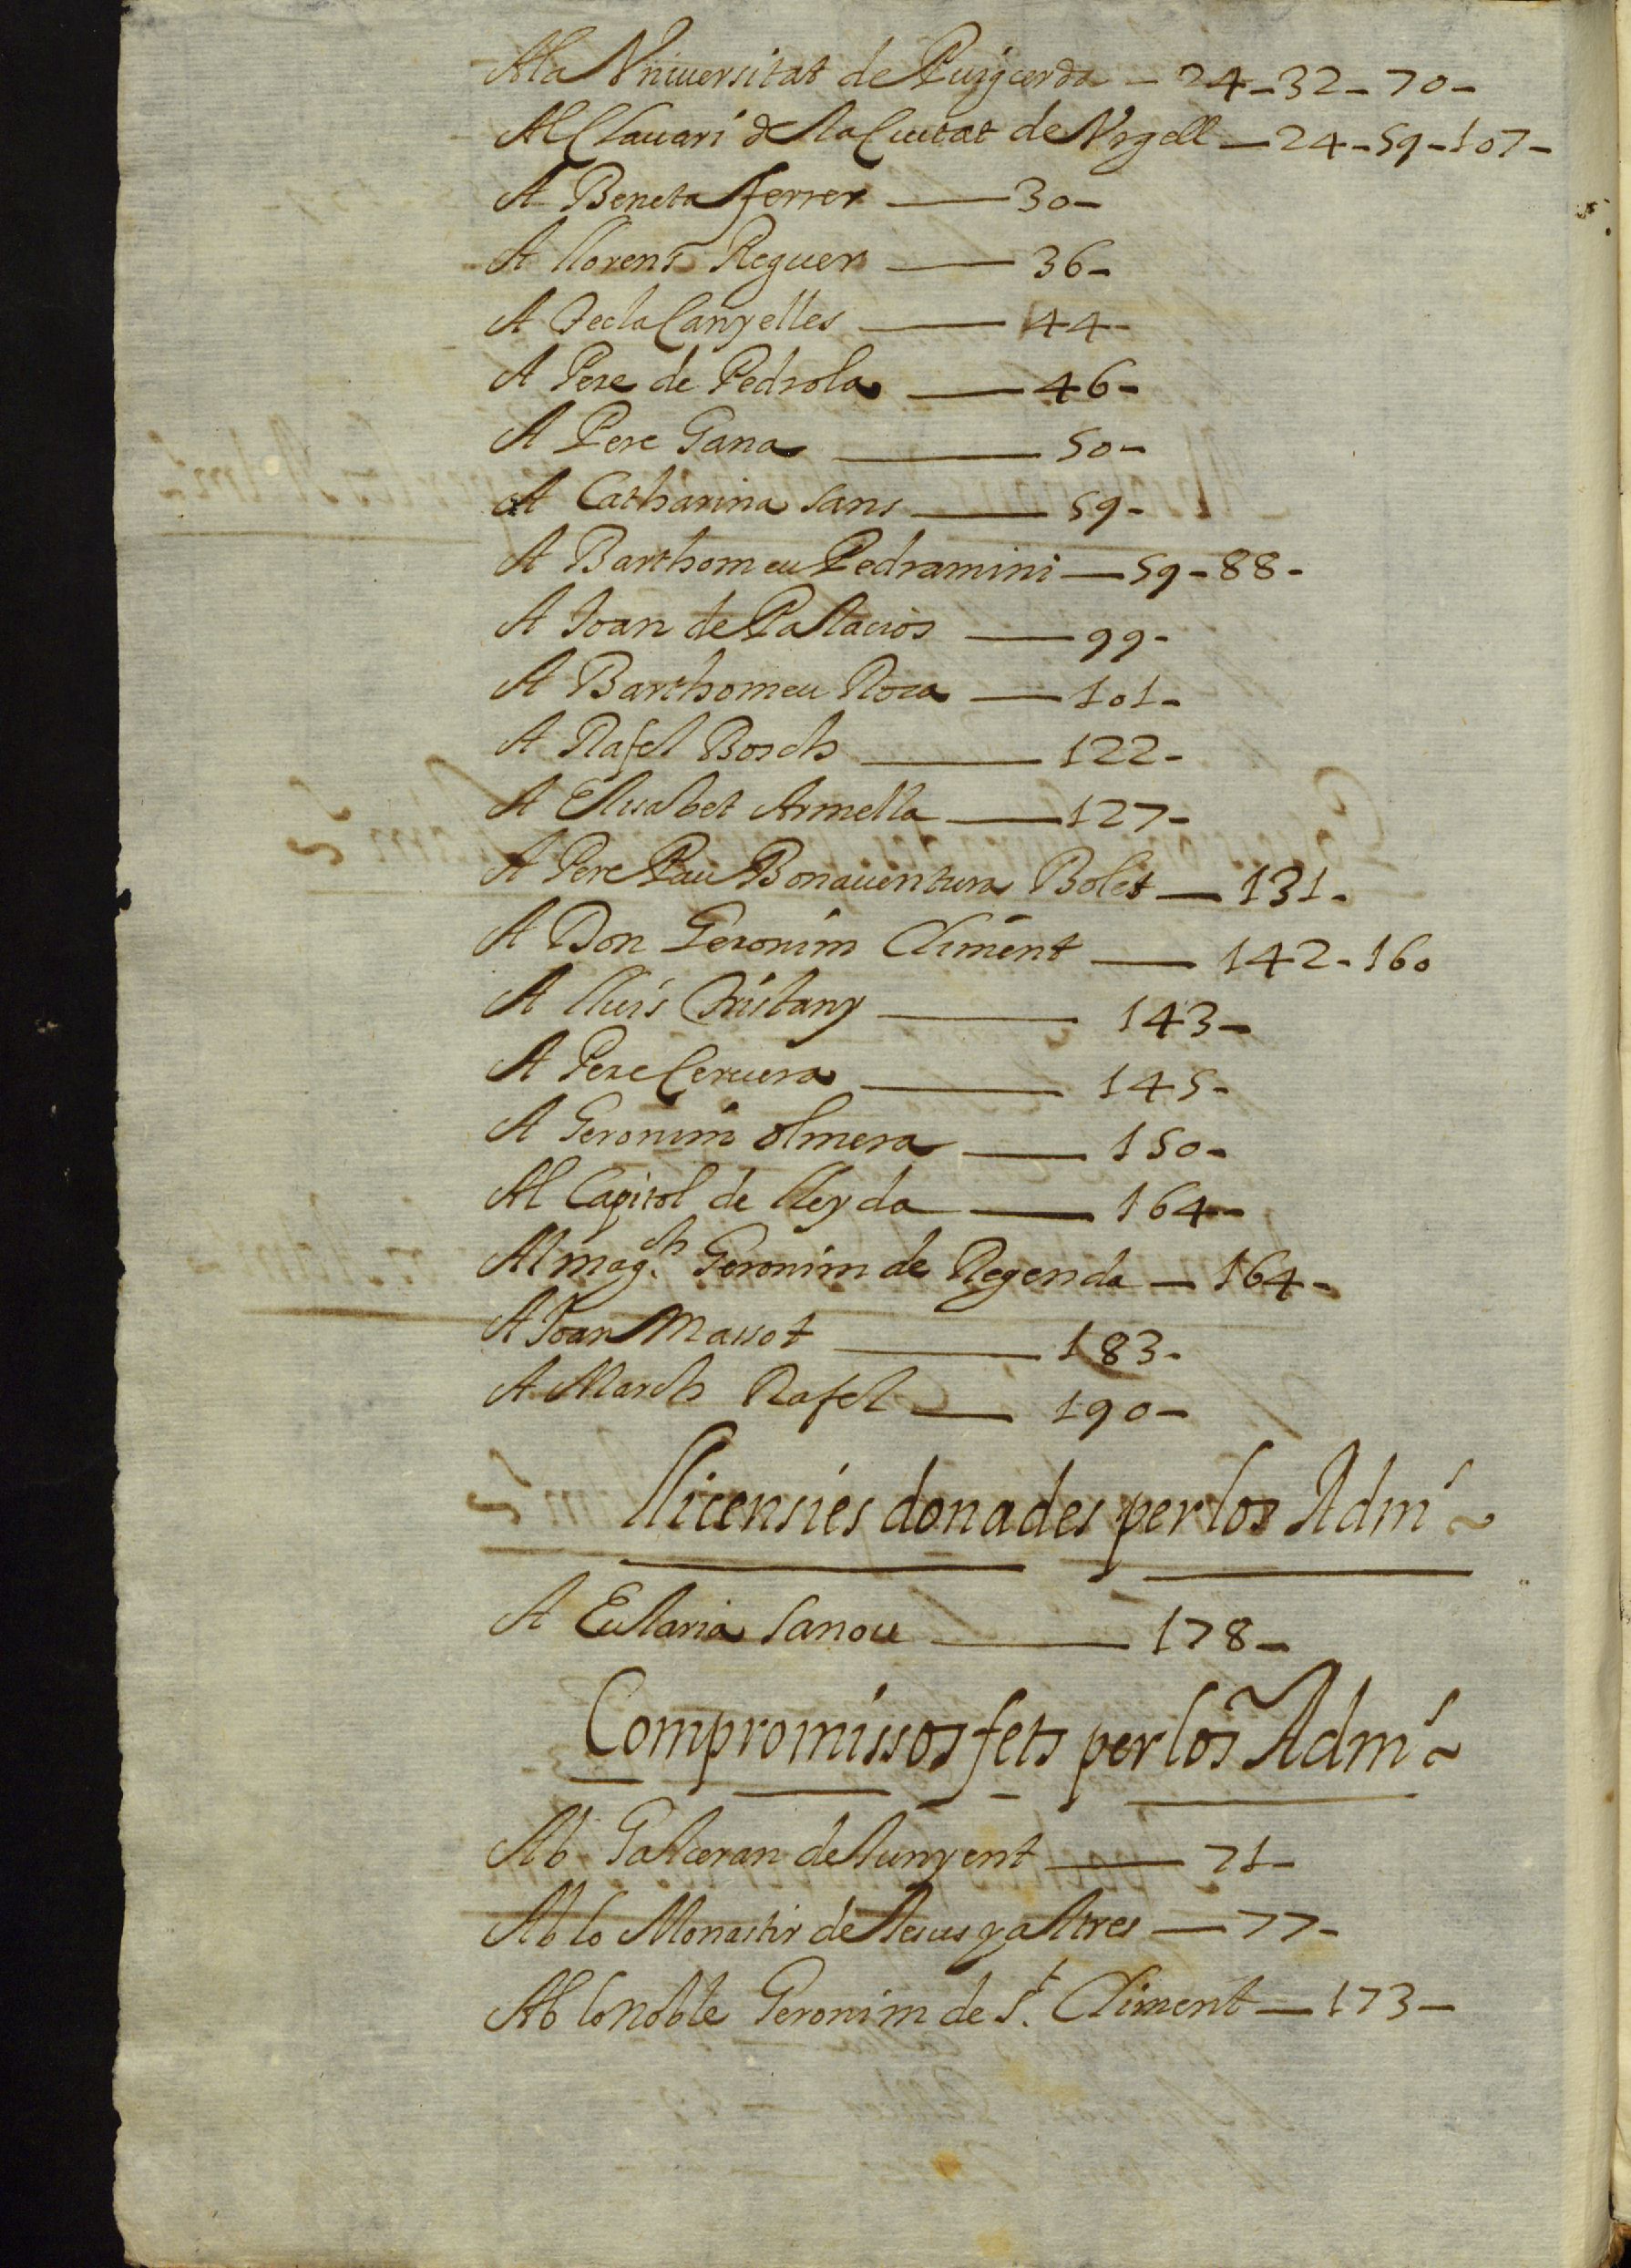 A la Vniuersitat de Puigcerda - 24 - 32 - 70 -
Al Clauari de la Ciutat de Vrgell - 24 - 59 - 107 -
A Beneta ferrer — 30 -
A llorens Reguer — 36 -
A Tecla Canyelles — 44 -
A Pere de Pedrola — 46 -
A Pere Gana — 50 -
A Catharina Sans — 59 -
A Barthomeu Pedramini — 59 - 88 -
A Joan de Palacios — 99 -
A Barthomeu Roca — 101 -
A Rafel Bosch — 122 -
A Elisabet Armella — 127 -
A Pere Pau Bonauentura Bolet — 131 -
A Don Geronim Climent — 142 - 160
A lluis Cristany — 143 -
A Pere Ceruera — 145 -
A Geronim Olmera — 150 -
Al Capitol de lleyda — 164 -
Al mag.ch Geronim de Regenda — 164 -
A Joan Massot — 183 -
A March Rafel — 190 -
llicensies donades per los Adm.s
A Eularia Sanou — 178 -
Compromissos fets per los Adm.s
Ab Galceran de llunyent — 71 -
Ab lo Monastir de Jesus y altres — 77 -
Ab lo noble Geronim de S.t Climent — 173 -